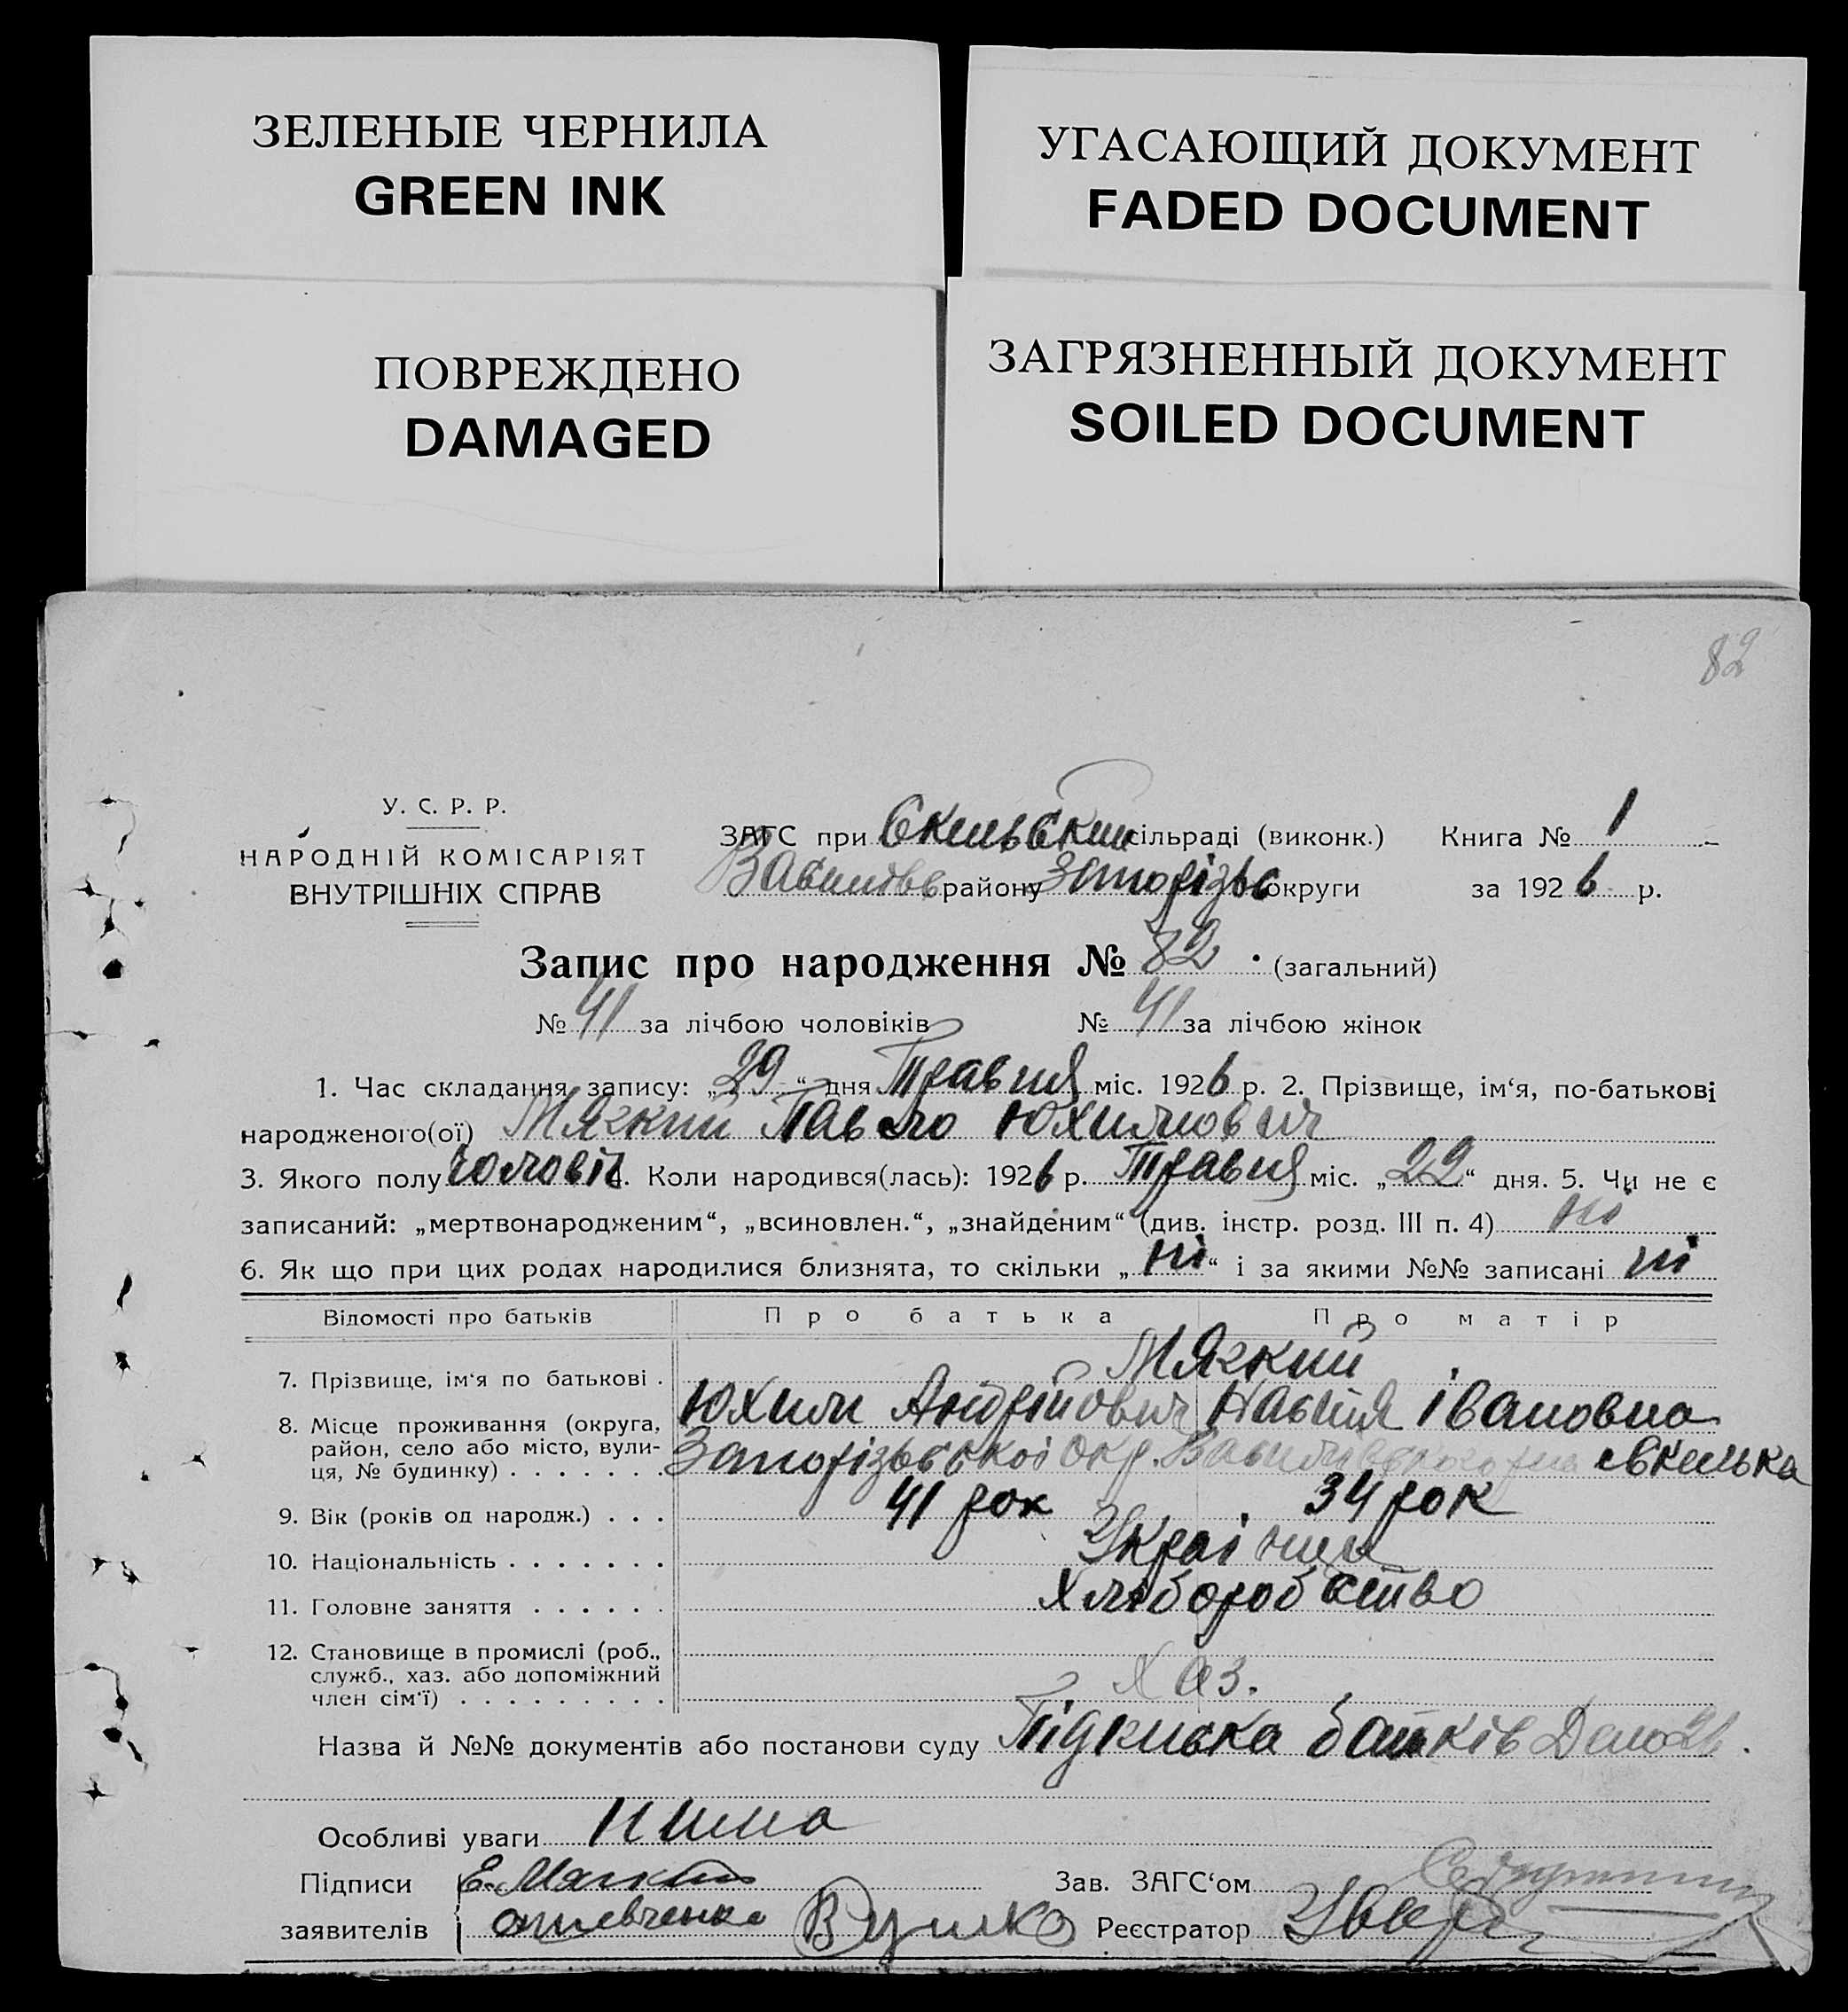 ЗЕЛЕНЫЕ ЧЕРНИЛА
GREEN INK
УГАСАЮЩИЙ ДОКУМЕНТ
FADED DOCUMENT
ПОВРЕЖДЕНО
DAMAGED
ЗАГРЯЗНЕННЫЙ ДОКУМЕНТ
SOILED DOCUMENT
82
У. С. Р. Р.
НАРОДНІЙ КОМІСАРІЯТ
ВНУТРІШНІХ СПРАВ
ЗАГС при Скельський сільраді (виконк.) Книга № 1
району Запорізьс округи за 1926 р.
Запис про народження № 82 (загальний)
№ 41 за лічбою чоловіків № 41 за лічбою жінок
1. Час складання запису: „29“ дня Травня міс. 1926 р. 2. Прізвище, ім‘я, по-батькові
народженого(ої) Мягкий Павло Юхимович
3. Якого полу чоловіч. Коли народився(лась): 1926 р. Травня міс. „22“ дня. 5. Чи не є
записаний: „мертвонародженим“, „всиновлен.“, „знайденим“ (див. інстр. розд. III п. 4) ні
6. Як що при цих родах народилися близнята, то скільки „ні“ і за якими №№ записані ні
Відомості про батьків Про батька Про матір
7. Прізвище, ім‘я по батькові . Мягкий
Юхим Андрійович Настя Івановна
8. Місце проживання (округа, район, село або місто, вулиця, № будинку) . . . . . . . Запорізьської окр. Василівського р-на
9. Вік (років од народж.) . . . 41 рок 34 рок
10. Національність . . . . . . . Українци
11. Головне заняття . . . . . . Хліборобство
12. Становище в промислі (роб., служб., хаз. або допоміжний член сім‘ї) . . . . . . . . . Хаз.
Назва й №№ документів або постанови суду Підписка батків
Особливі уваги Нима
Підписи Е. Мягкий Зав. ЗАГС‘ом
заявителів Реєстратор